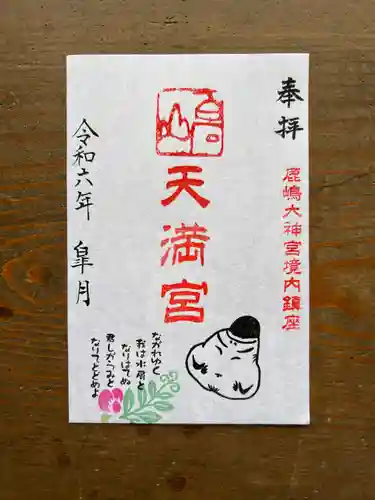 奉拝
鹿嶋大神宮境内鎮座
天満宮
ながれゆく
我は水屑と
なりはてぬ
君しがらみと
なりてとどめよ
令和六年 皐月